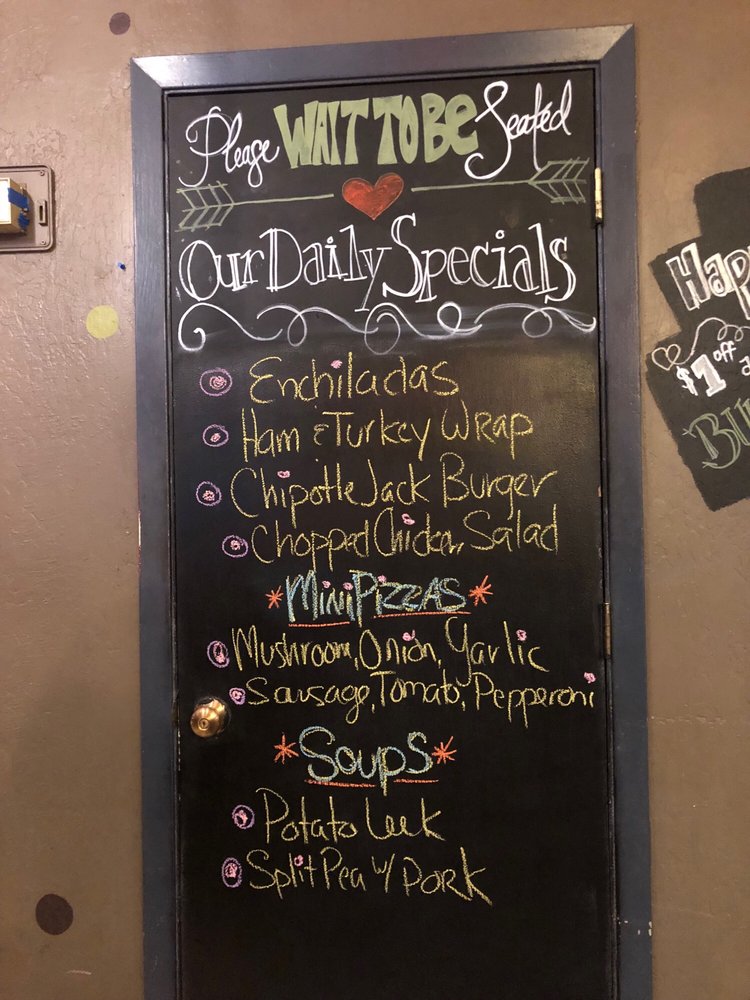 Please WAIT TO BE Seated
Our Daily Specials
Enchiladas
Ham & Turkey Wrap
Chipotle Jack Burger
Chopped Chicken Salad
*Mini Pizzas*
Mushroom, Onion, Garlic
Sausage, Tomato, Pepperoni
*Soups*
Potato Leek
Split Pea w/ Pork
Hap
$1 off